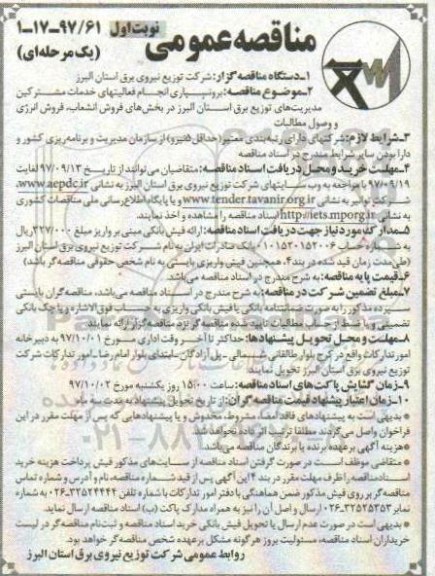 مناقصه عمومی
نوبت اول
۱-۱۷-۹۷/۶۱
(یک مرحله‌ای)
۱-دستگاه مناقصه گزار: شرکت توزیع نیروی برق استان البرز
۲-موضوع مناقصه: برونسپاری انجام فعالیتهای خدمات مشترکین
مدیریت‌های توزیع برق استان البرز در بخش‌های فروش انشعاب، فروش انرژی
و وصول مطالبات
۳-شرایط لازم: شرکتهای دارای رتبه‌بندی معتبر (حداقل ۵نیرو) از سازمان مدیریت و برنامه‌ریزی کشور و
دارا بودن سایر شرایط مندرج در اسناد مناقصه
۴-مهلت خرید و محل دریافت اسناد مناقصه: متقاضیان می‌توانند از تاریخ ۹۷/۰۹/۱۳ لغایت
۹۷/۰۹/۱۹ با مراجعه به وب سایتهای شرکت توزیع نیروی برق استان البرز به نشانی www.aepdc.ir،
شرکت توانیر به نشانی www.tender.tavanir.org.ir و یا پایگاه اطلاع‌رسانی ملی مناقصات کشوری
به نشانی http://iets.mporg.ir اسناد مناقصه را مشاهده و اخذ نمایند.
۵-مدارک مورد نیاز جهت دریافت اسناد مناقصه: ارائه فیش بانکی مبنی بر واریز مبلغ ۳۲۷/۰۰۰ ریال
به شماره حساب ۰۱۰۱۵۲۰۱۵۲۰۰۶ بانک صادرات ایران به نام شرکت توزیع نیروی برق استان البرز
(طی مدت زمان قید شده در بند ۴. همچنین فیش واریزی بایستی به نام شخص حقوقی مناقصه‌گر باشد)
۶-قیمت پایه مناقصه: به شرح مندرج در اسناد مناقصه می‌باشد.
۷-مبلغ تضمین شرکت در مناقصه: به شرح مندرج در اسناد مناقصه می‌باشد، مناقصه‌گران بایستی
سپرده مذکور را به صورت ضمانتنامه بانکی یا فیش بانکی واریزی به حساب فوق‌الاشاره و یا چک بانکی
تضمینی یا ضبط از محل مطالبات تایید شده مناقصه‌گر نزد مناقصه‌گزار ارائه نمایند.
۸-مهلت و محل تحویل پیشنهادها: حداکثر تا آخر وقت اداری مورخ ۹۷/۱۰/۰۱ به دبیرخانه
امور تدارکات واقع در کرج بلوار طالقانی شمالی-پل آزادگان-ابتدای بلوار امام رضا-امور تدارکات شرکت
توزیع نیروی برق استان البرز تحویل نمایند
۹-زمان گشایش پاکت های اسناد مناقصه: ساعت ۱۵:۰۰ روز یکشنبه مورخ ۹۷/۱۰/۰۲
۱۰-زمان اعتبار پیشنهاد قیمت مناقصه‌گران: از تاریخ تحویل پیشنهاد به مدت سه ماه
* بدیهی است به پیشنهادهای فاقد امضا، مشروط، مخدوش و یا پیشنهادهایی که پس از مهلت مقرر در این
فراخوان واصل می‌گردند مطلقا ترتیب اثر داده نخواهد شد.
* هزینه آگهی بر عهده برنده یا برندگان مناقصه می‌باشد.
* متقاضی موظف است در صورت گرفتن اسناد مناقصه از سایت‌های مذکور فیش پرداخت هزینه خرید
اسناد مناقصه را ظرف مهلت مقرر در بند ۴ این آگهی پس از قید شماره مناقصه، نام و آدرس و شماره تماس
مناقصه‌گر بر روی فیش مذکور ضمن هماهنگی با دفتر امور تدارکات با شماره تلفن ۳۲۵۲۴۴۴۴-۰۲۶ به شماره
نمابر ۳۲۵۲۵۳۵۳-۰۲۶ ارسال و اصل آن را نیز به همراه مدارک پاکت (ب) اسناد مناقصه ارسال نماید.
* بدیهی است در صورت عدم ارسال یا تحویل فیش بانکی خرید اسناد مناقصه و ثبت نام مناقصه‌گر در لیست
خریداران اسناد مناقصه، مسئولیت بروز هرگونه مشکل بر عهده شخص مناقصه‌گر خواهد بود.
روابط عمومی شرکت توزیع نیروی برق استان البرز